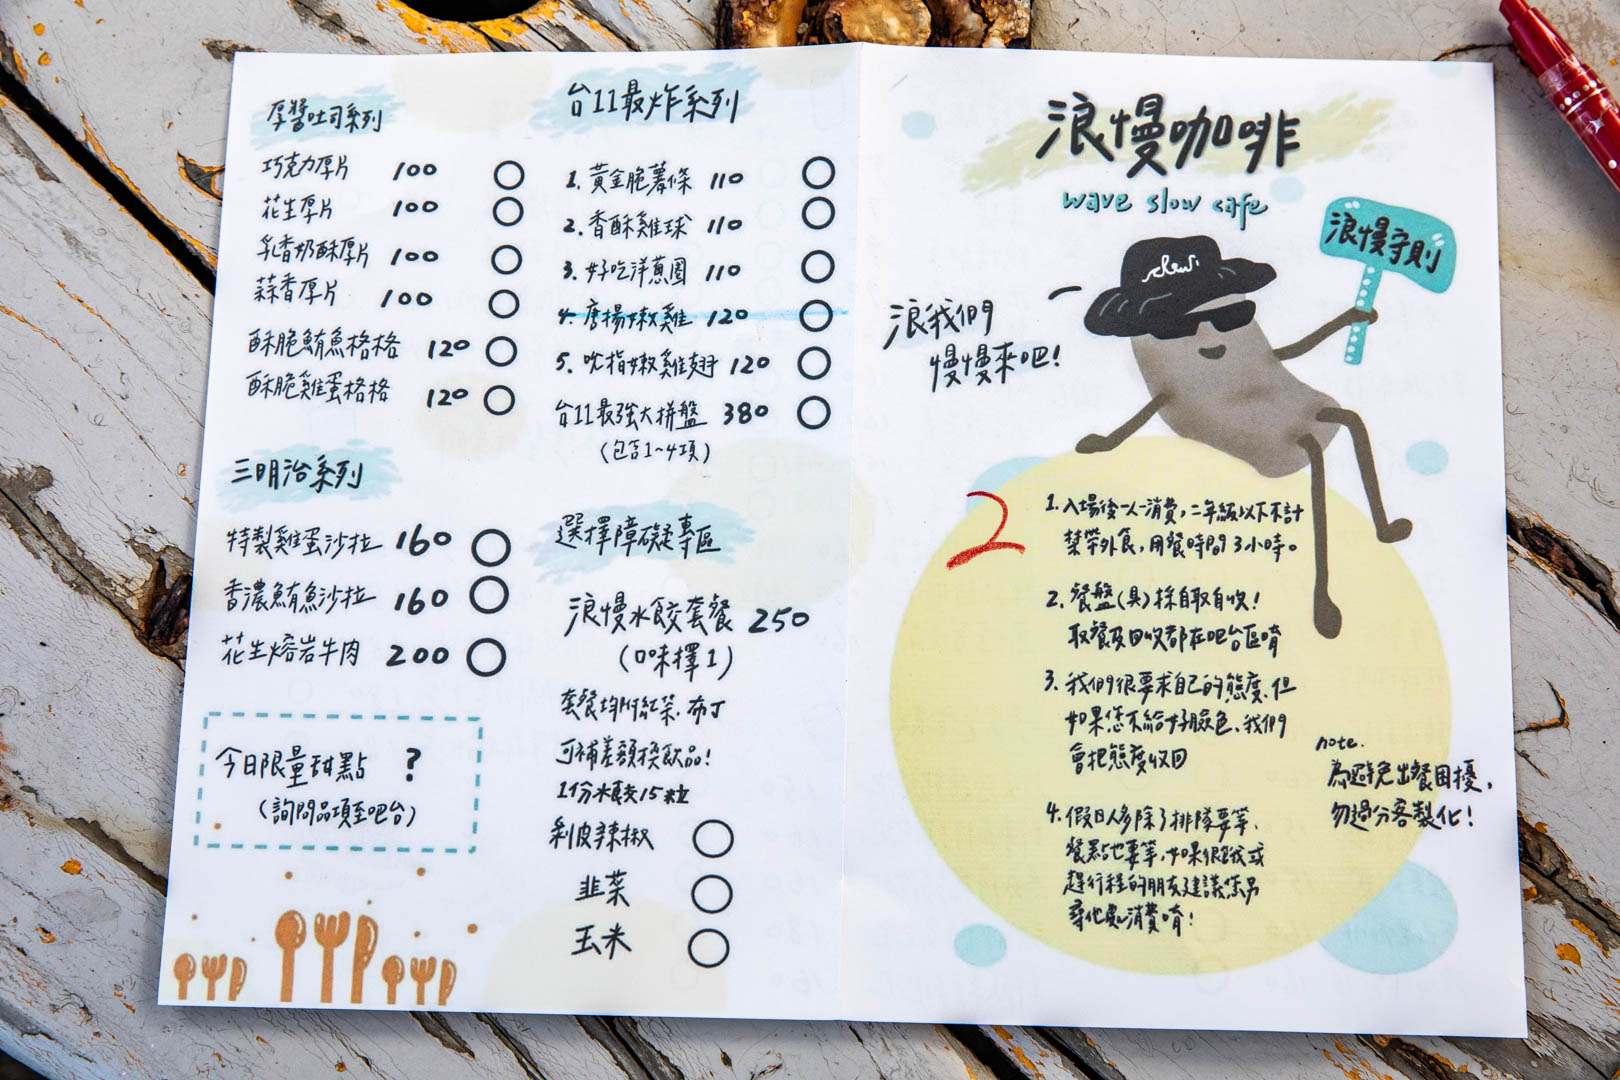 厚醬吐司系列
巧克力厚片 100
花生厚片 100
乳香奶酥厚片 100
蒜香厚片 100
酥脆鮪魚格格 120
酥脆雞蛋格格 120
三明治系列
特製雞蛋沙拉 160
香濃鮪魚沙拉 160
花生熔岩牛肉 200
今日限量甜點 ?
(詢問品項至吧台)
台11最炸系列
1. 黃金脆薯條 110
2. 香酥雞球 110
3. 好吃洋蔥圈 110
4. 唐揚嫩雞 120
5. 吮指嫩雞翅 120
台11最強大拼盤 380
(包含1~4項)
選擇障礙專區
浪慢水餃套餐 250
(口味擇1)
套餐均附紅茶、布丁
可補差額換飲品!
1份水餃15粒
剝皮辣椒
韭菜
玉米
浪慢咖啡
wave slow cafe
浪慢守則
浪我們
慢慢來吧!
2
1. 入場後一人一消費,二年級以下不計
禁帶外食,用餐時間3小時。
2. 餐盤(具)採自取自收!
取餐及回收都在吧台區唷
3. 我們很要求自己的態度,但
如果您不給好臉色,我們
會把態度收回
4. 假日人多除了排隊要等,
餐點也要等,如果很餓或
趕行程的朋友建議您另
尋他處消費唷!
note.
為避免出餐困擾,
勿過分客製化!